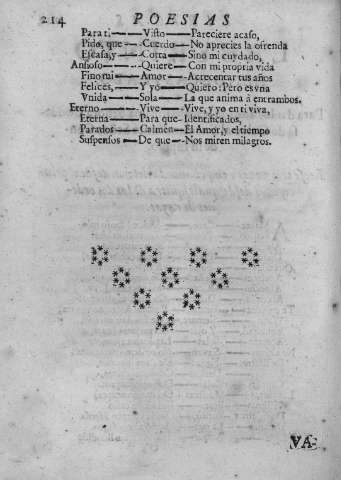 214 POESIAS
Para ti — Visto — Pareciere acaso,
Pido, que — Cuerdo — No aprecies la ofrenda
Escasa, y — Corta — Sino mi cuydado,
Ansioso — Quiere — Con mi propria vida
Fino mi — Amor — Acrecentar tus años
Felices, — Y yo — Quiero: Pero es vna
Vnida — Sola — La que anima à entrambos.
Eterno — Vive — Vive, y yo en ti viva,
Eterna — Para que — Identificados,
Para dos — Calmen — El Amor, y el tiempo
Suspensos — De que — Nos miren milagros.
VA-